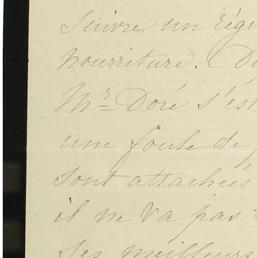 suivre un régi
nourriture. De
Mr Doré s'est
une foule de
sont attachées
il ne va pas
ses meilleurs